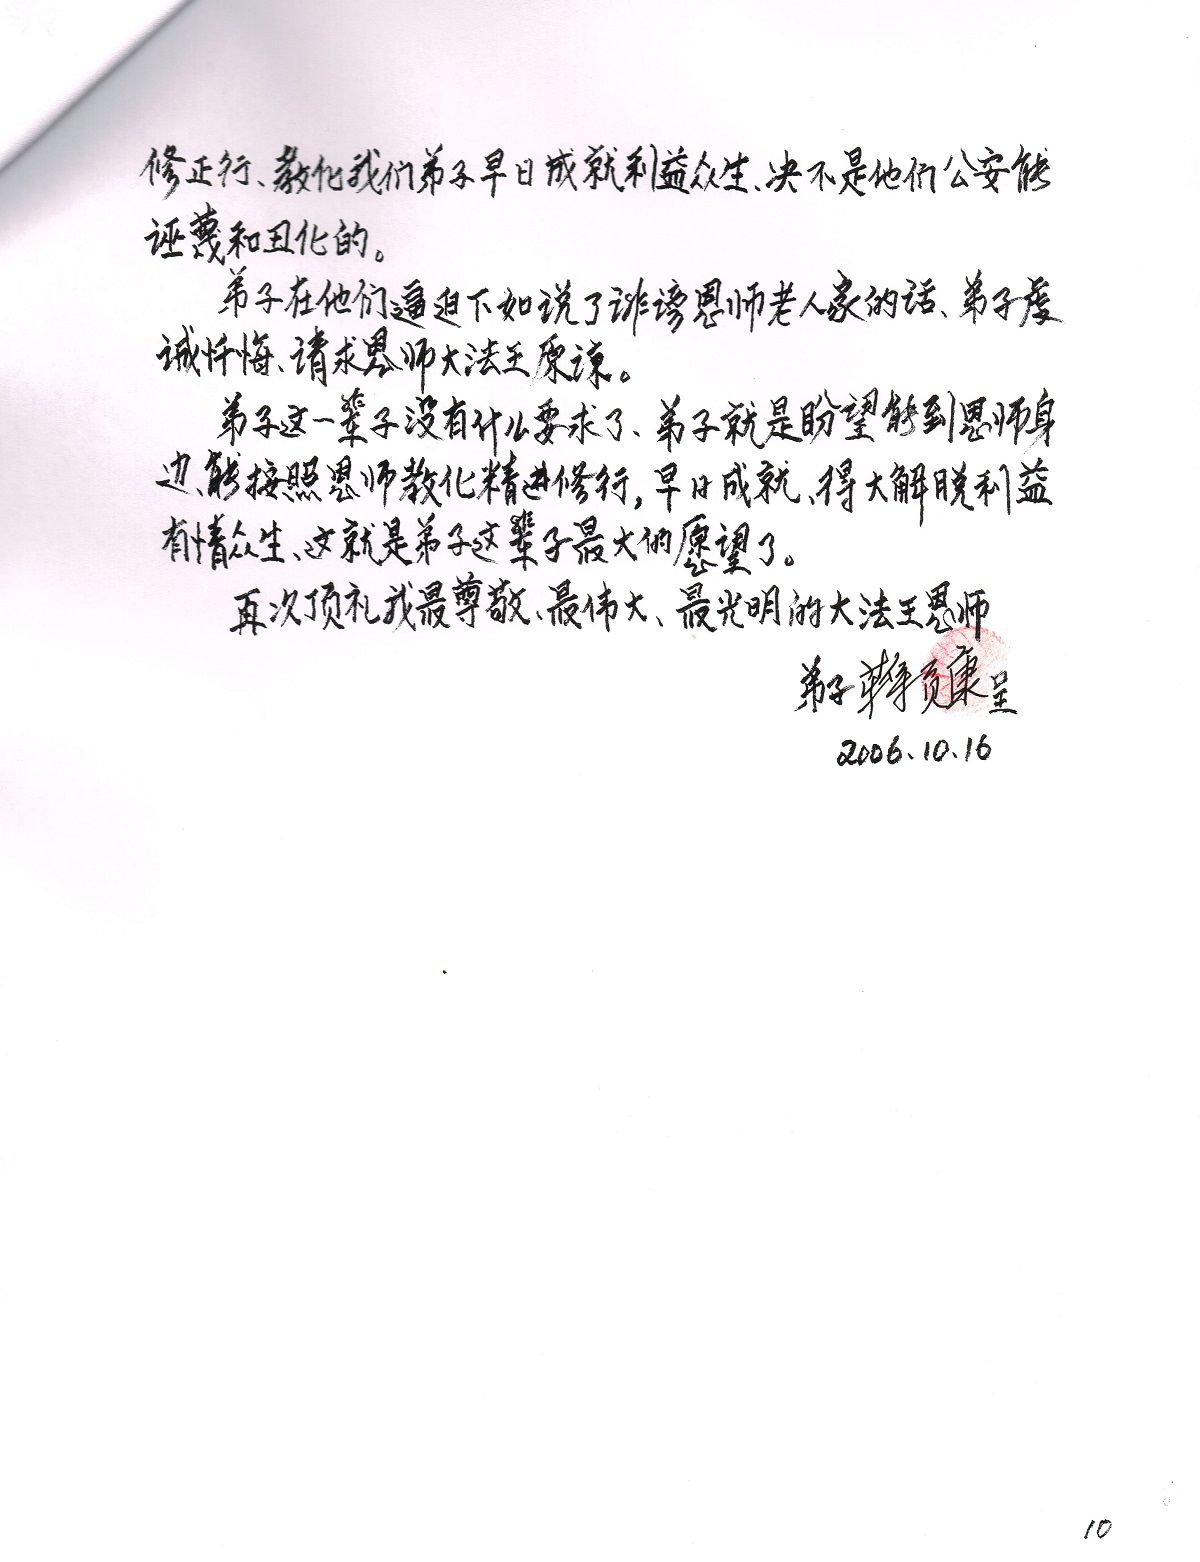 修正行、教化我们弟子早日成就利益众生、决不是他们公安能
诬蔑和丑化的。
弟子在他们逼迫下如说了诽谤恩师老人家的话、弟子虔
诚忏悔、请求恩师大法王原谅。
弟子这一辈子没有什么要求了、弟子就是盼望能到恩师身
边、能按照恩师教化精进修行，早日成就、得大解脱利益
有情众生、这就是弟子这辈子最大的愿望了。
再次顶礼我最尊敬、最伟大、最光明的大法王恩师
弟子 康呈
2006.10.16
10